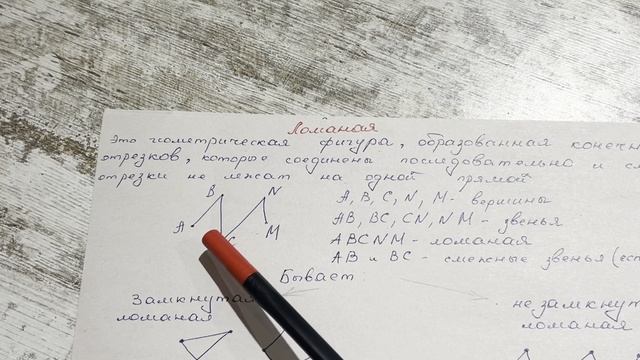 Ломаная
Это геометрическая фигура, образованная конечн
отрезков, которые соединены последовательно и см
отрезки не лежат на одной прямой
B N
A C M
A, B, C, N, M - вершины
AB, BC, CN, NM - звенья
ABCNM - ломаная
AB и BC - смежные звенья (ест
Бывает
Замкнутая
ломаная
незамкнут
ломаная